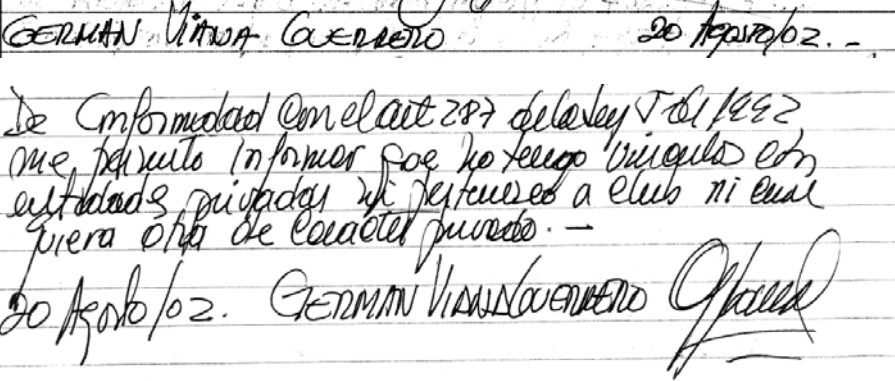 GERMAN VIANA GUERRERO 20 Agosto/02. -
De Conformidad Con el art 287 de la ley 5 de 1992
me permito informar que no tengo vinculos con
entidades privadas ni pertenezco a club ni cual
quiera otra de caracter privado. -
20 Agosto/02. GERMAN VIANA GUERRERO